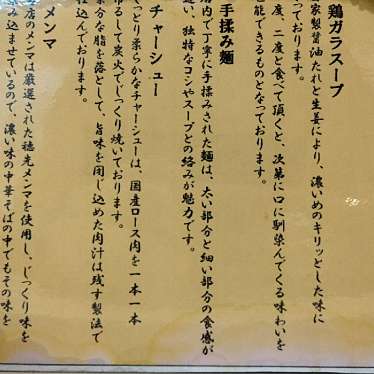 鶏ガラスープ
家製醤油たれと生姜により、濃いめのキリッとした味に
っております。
度、二度と食べて頂くと、次第に口に馴染んでくる味わいを
能できるものとなっております。
手揉み麺
店内で丁寧に手揉みされた麺は、太い部分と細い部分の食感が
違い、独特なコシやスープとの絡みが魅力です。
チャーシュー
っとり柔らかなチャーシューは、国産ロース肉を一本一本
吊るして炭火でじっくり焼いております。
余分な脂を落として、旨味を閉じ込めた肉汁は残す製法で
仕込んでおります。
メンマ
店のメンマは厳選された穂先メンマを使用し、じっくり味を
み込ませているので、濃い味の中華そばの中でもその味を